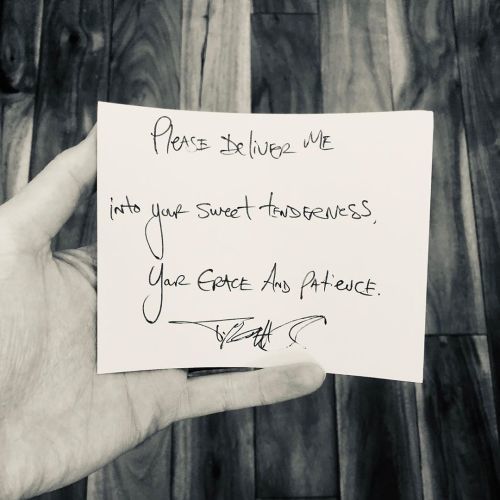 PLEASE DeliveR ME
into your sweet TENDERNESS,
Your GRACE AND PATIENCE.